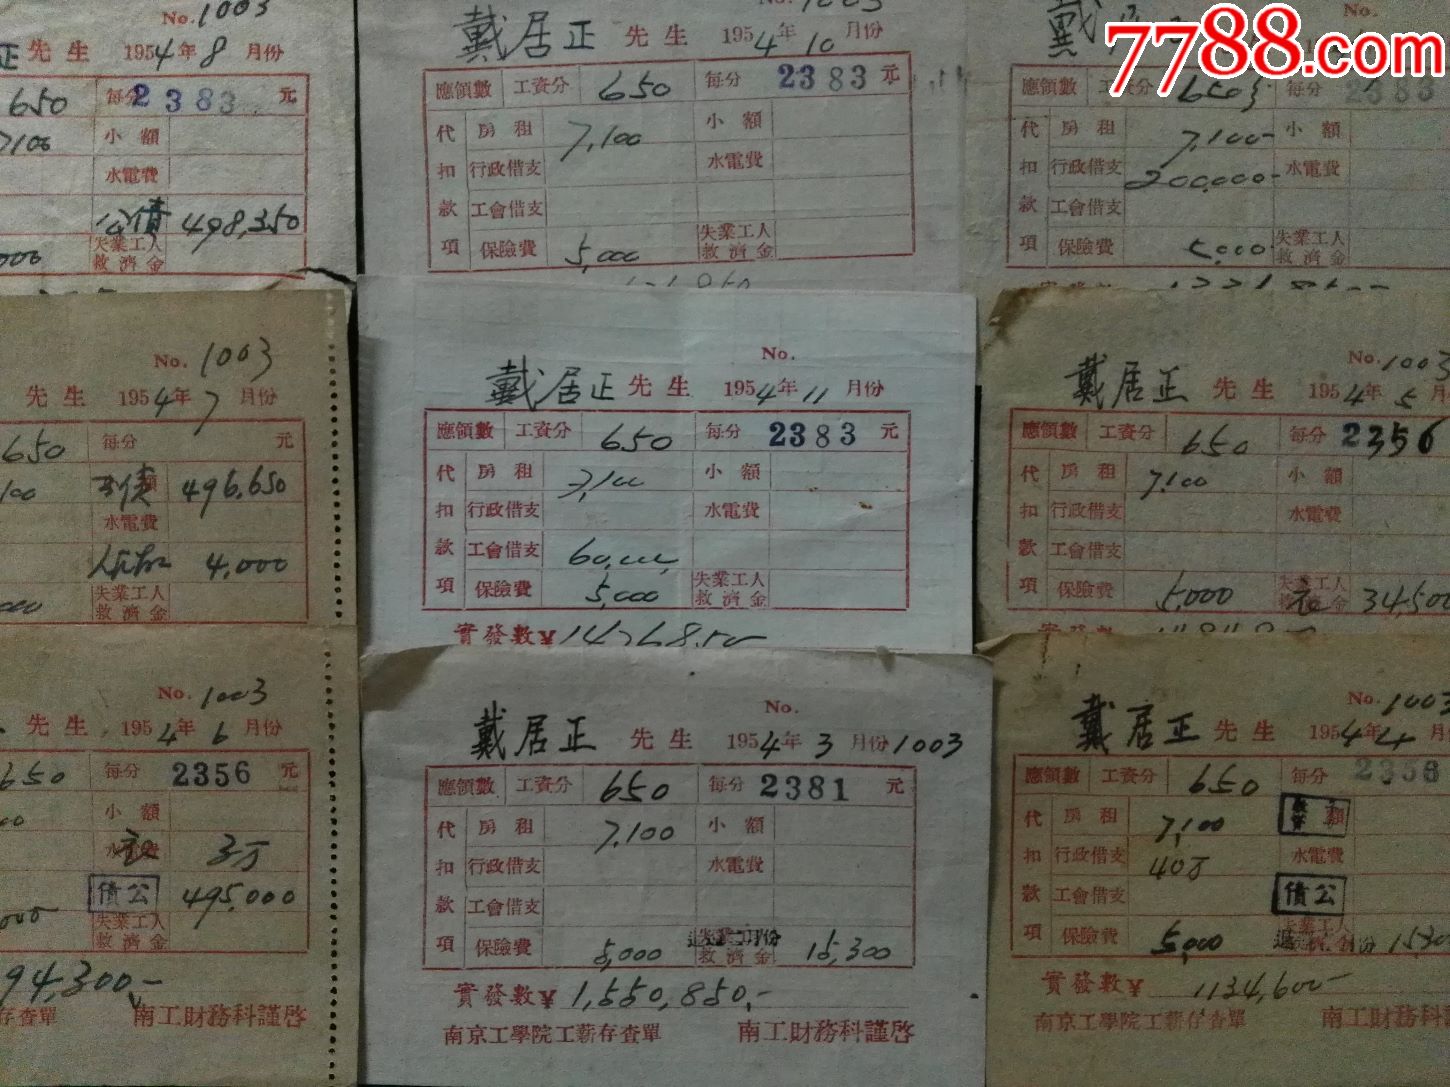 7788.com
No. 1003
正 先生 1954年8月份
650 每分 2383 元
7,100 小額
水電費
公債 498,350
失業工人
救濟金
戴居正 先生 1954年10月份
應領數 工資分 650 每分 2383 元
代 房租 7,100 小額
扣 行政借支 水電費
款 工會借支
項 保險費 5,000 失業工人
救濟金
No.
戴
應領數 工資分 650 每分 2383
代 房租 7,100- 小額
扣 行政借支 200,000- 水電費
款 工會借支
項 保險費 5,000 失業工人
救濟金
No. 1003
先生 1954年7月份
650 每分 元
100 公債 496,650
水電費
4,000
失業工人
救濟金
No.
戴居正 先生 1954年11月份
應領數 工資分 650 每分 2383 元
代 房租 7,100 小額
扣 行政借支 水電費
款 工會借支 60,000
項 保險費 5,000 失業工人
救濟金
實發數¥
No. 1003
戴居正 先生 1954年5月
應領數 工資分 650 每分 2356
代 房租 7,100 小額
扣 行政借支 水電費
款 工會借支
項 保險費 5,000 34,500
No. 1003
先生 1954年6月份
650 每分 2356 元
小額
3万
債公 495,000
失業工人
救濟金
94,300-
存查單 南工財務科謹啓
No.
戴居正 先生 1954年3月份 1003
應領數 工資分 650 每分 2381 元
代 房租 7,100 小額
扣 行政借支 水電費
款 工會借支
項 保險費 5,000 失業工人 15,300
救濟金
實發數¥ 1,550,850,-
南京工學院工薪存查單 南工財務科謹啓
No. 1003
戴居正 先生 1954年4月
應領數 工資分 650 每分 2356
代 房租 7,100
扣 行政借支 408 水電費
款 工會借支 債公
項 保險費 5,000
實發數¥ 1134,600-
南京工學院工薪存查單 南工財務科